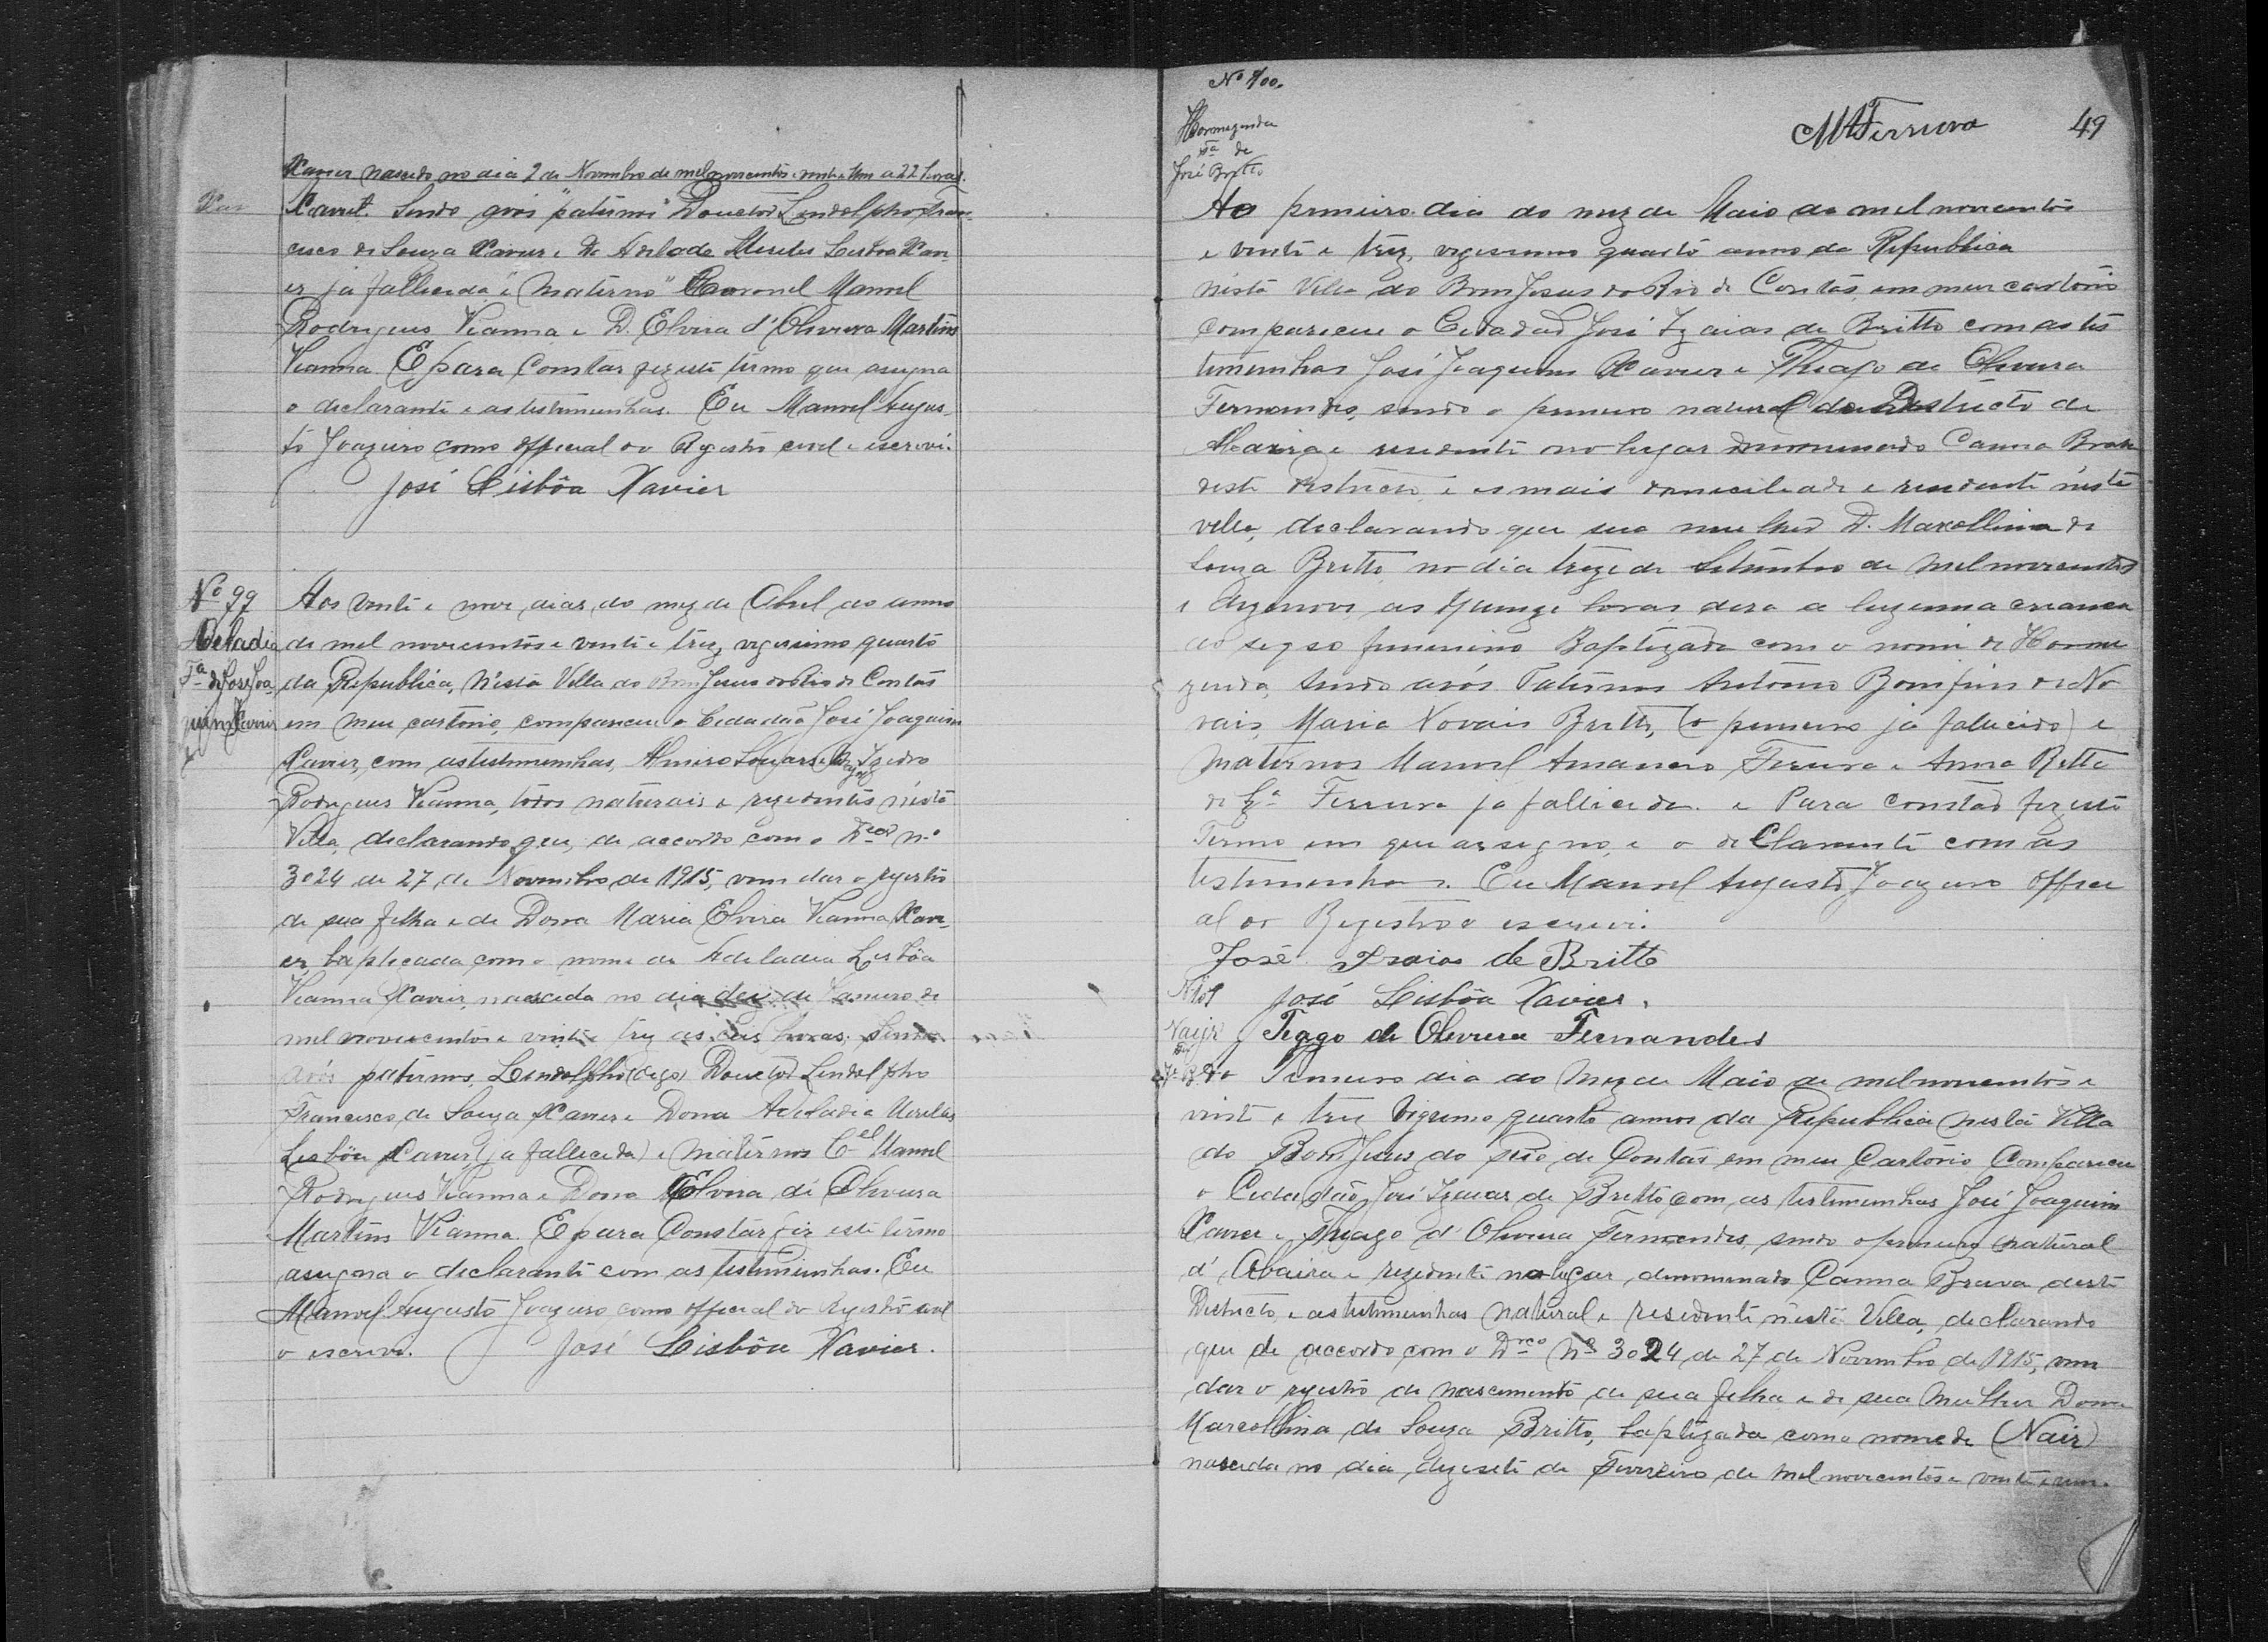 Xavier nascido no dia 2 de Novembro de mil novecentos e vinte e um as 22 horas.
Xavier. Sendo avós "paternos" Douctor Lindolpho Fran-
cisco de Souza Xavier e Da Adelade Meirelles Lisbôa Xavi-
er já fallecida e "Materno" Coronel Manoel
Rodrigues Vianna e D. Elvira d'Oliveira Martins
Vianna E para constar fiz este termo que assigna
o declarante e as testemunhas. Eu Manoel Augus-
to Joazeiro como official do Registro civil e escrevi.
José Lisbôa Xavier
Nº 99
Adeladia
Fª de José Joa-
quim Xavier
Aos vinte e nove dias do mez de Abril do anno
de mil novecentos e vinte e trez, vigesimo quarto
da Republica, n'esta Villa do Bom Jesus do Rio de Contas
em meu cartorio, compareceu o Cidadão José Joaquim
Xavier, com as testemunhas, Almiro Soares e Izidro
Rodrigues Vianna, todos naturais e rezidentes n'esta
Villa, declarando que, de accordo com o Decr nº
3024 de 27 de Novembro de 1915, vem dar o registro
de sua filha e de Dona Maria Elvira Vianna Xavi-
er, baptisada com o nome de Adeladia Lisbôa
Vianna Xavier, nascida no dia dez de Janeiro de
mil novecentos e vinte e trez as seis horas. Sendo
avós paternos, Lindolpho (digo) Douctor Lindolpho
Francisco de Souza Xavier e Dona Adeladia Meirelles
Lisbôa Xavier (ja fallecida) e maternos Cel Manoel
Rodrigues Vianna e Dona Elvira de Oliveira
Martins Vianna. E para constar fiz este termo
assigna o declarante com as testemunhas. Eu
Manoel Augusto Joazeiro, como official do Registro civil
o escrevi. José Lisbôa Xavier.
Nº 100.
Hormezenda
Fª de
José Britto
MAFerreira 49
Ao primeiro dia do mez de Maio de mil novecentos
e vinte e trez, vigesimo quarto anno da Republica
nésta Villa do Bom Jesus do Rio de Contas, em meu cartorio
compareceu o Cidadão José Izaias de Britto com as tes
temunhas José Joaquim Xavier e Thiago de Oliveira
Fernandes, sendo o primeiro natural do Destricto de
Abaira e residente no lugar denominado Canna Brava
deste destricto, e os mais domiciliado e residente nésta
villa, declarando que sua mulher D. Marcollina de
Souza Britto no dia treze de Setembro de mil novecentos
e dezenove, as quinze horas, dera a luz uma creança
do segso femenino Baptizada com o nome de Horme
zenda, sendo avós Paternos Antonio Bomfim de No
vais, Maria Novais Britto, (o primeiro já fallecido) e
Maternos Manoel Amancio Ferreira e Anna Ritta
de Ferreira ja fallecida. e Para constar fiz este
Termo em que assigno, e o declarante com as
testemunhas. Eu Manoel Augusto Joazeiro offici
al do Registro o escrevi.
José Izaias de Britto
José Lisbôa Xavier.
Tiago de Oliveira Fernandes
N 101
Nair
Ao Primeiro dia do Mez de Maio de mil novecentos e
vinte e trez vigesimo quarto annos da Republica nesta Villa
do Bom Jesus do Rio de Contas em meu Cartorio Compareceu
o Cidadão José Izaias de Britto com as testemunhas José Joaquim
Xavier e Thiago d'Oliveira Fernandes, sendo o primeiro natural
d'Abaira e rezidente no lugar denominado Canna Brava deste
Destricto, e as testemunhas natural e residente nésta Villa, declarando
que de accordo com o Dreo Nº 3024 de 27 de Novembro de 1915, vem
dar o registro de nascimento de sua filha e de sua Mulher Dona
Marcollina de Souza Britto, baptizada com o nome de (Nair)
nascida no dia dezesete de Fevereiro de mil novecentos e vinte e um.